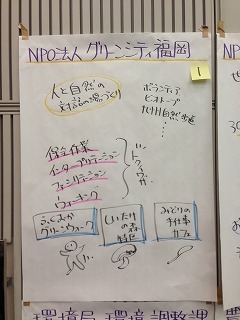 NPO法人グリーンシティ福岡
1
人と自然の
対話の場づくり
ボランティア
ビオトープ
九州自然歩道
……
保全作業
インタープリテーション
ファシリテーション
ウォーキング
ふくおか
グリーンウォーク
しいたけ
の森
みどりの
手仕事
カフェ
環境局 環境調整課